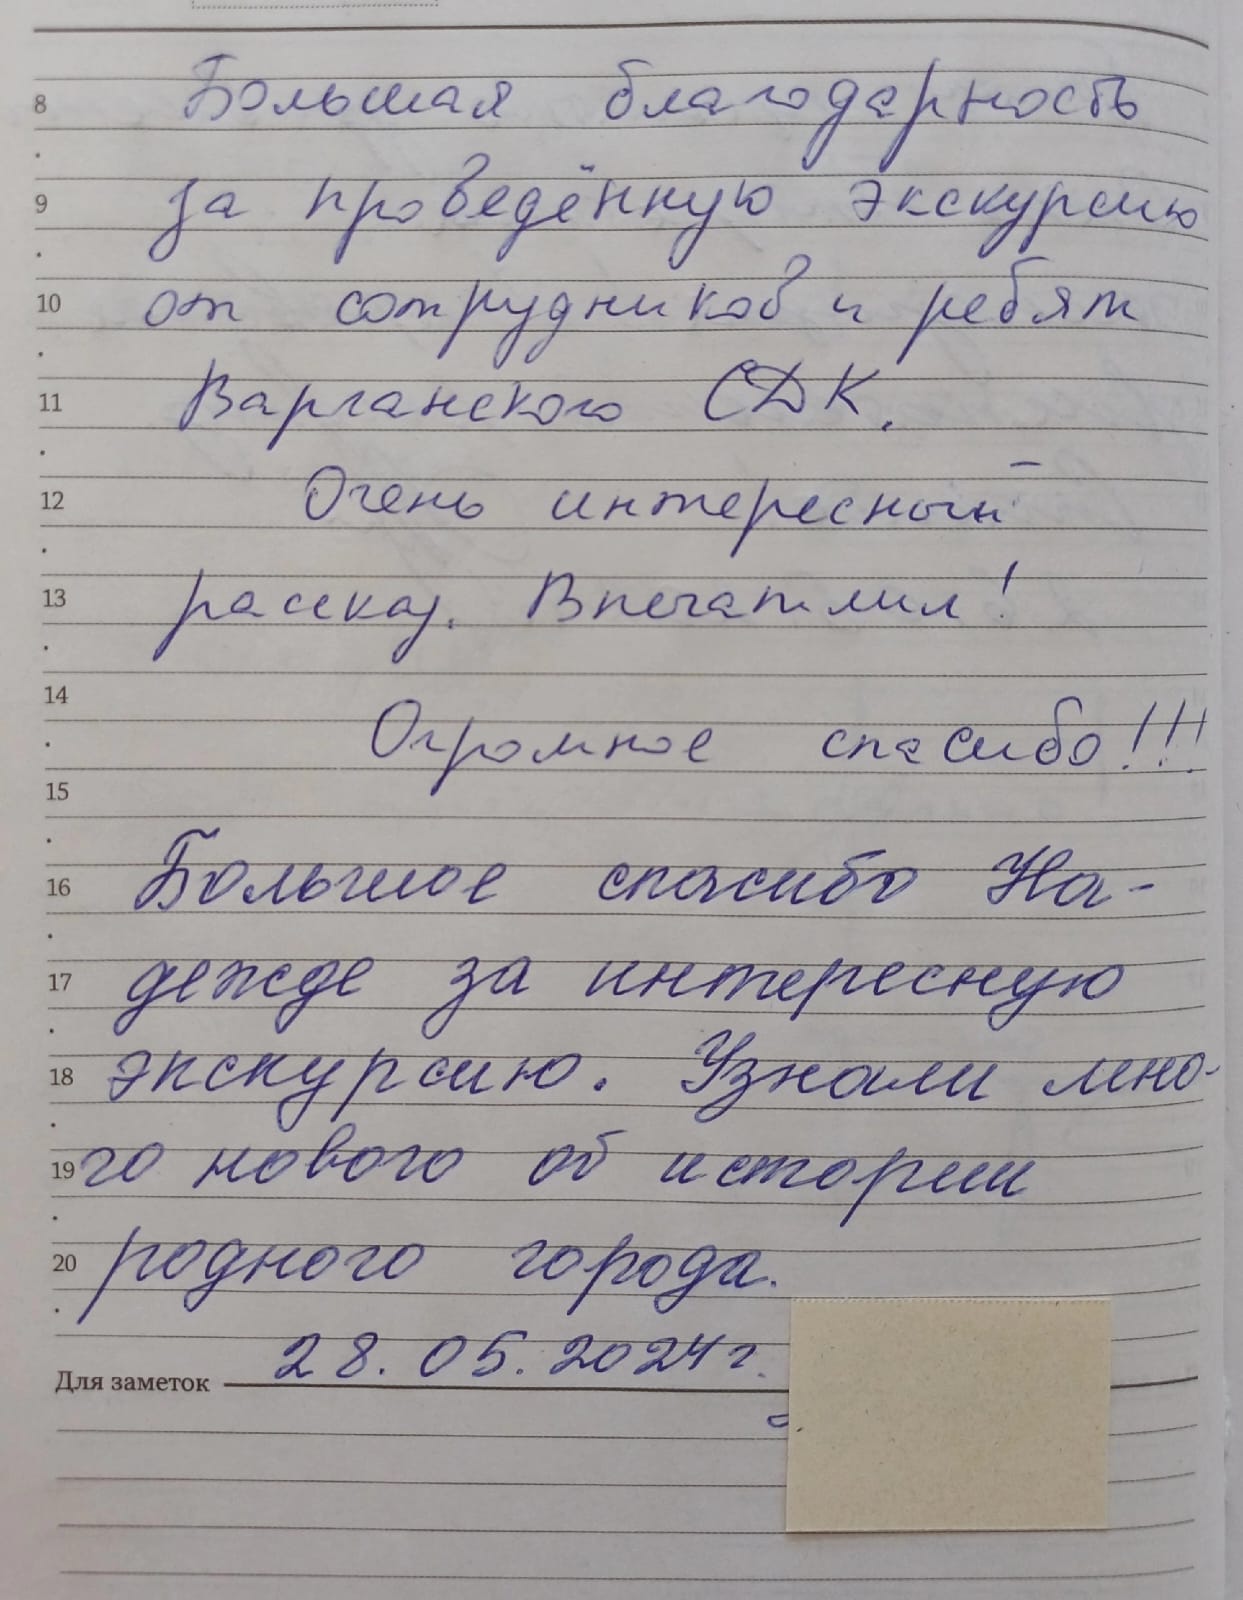 8 Большая благодарность
9 за проведённую экскурсию
10 от сотрудников и ребят
11 Варганского СДК.
12 Очень интересный
13 рассказ. Впечатлил!
14
Огромное спасибо!!!
15
16 Большое спасибо На-
17 дежде за интересную
18 экскурсию. Узнали мно-
19 го нового об истории
20 родного города.
28.05.2024г.
Для заметок